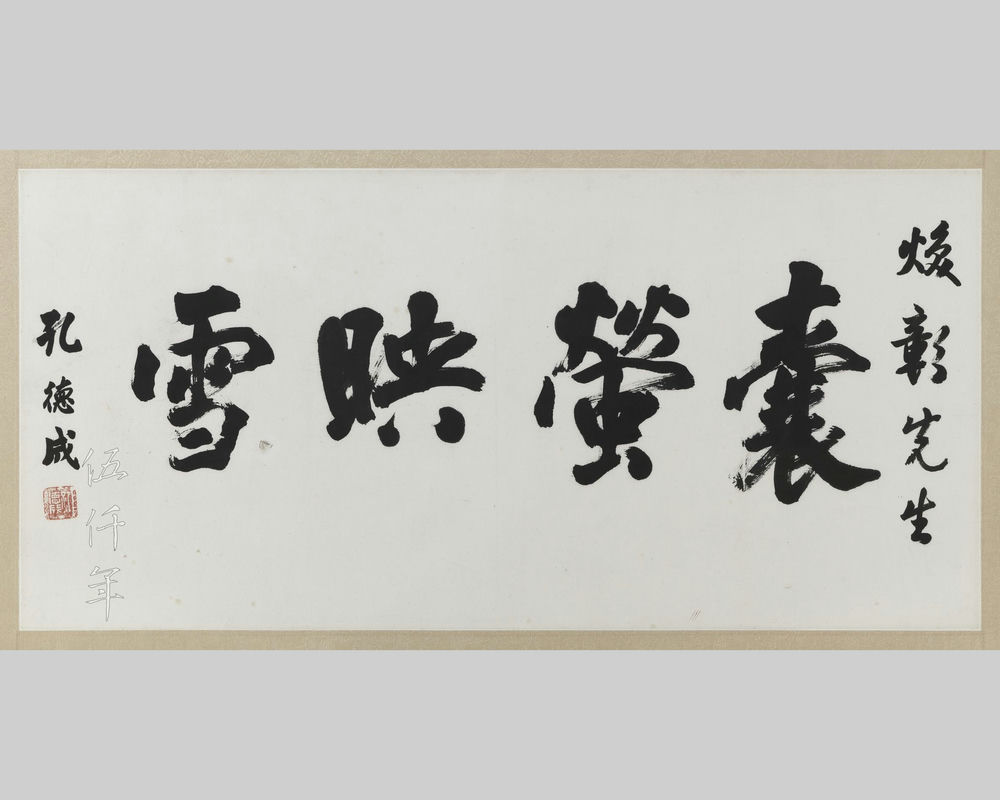 煥彰先生
囊螢映雪
孔德成
伍仟年